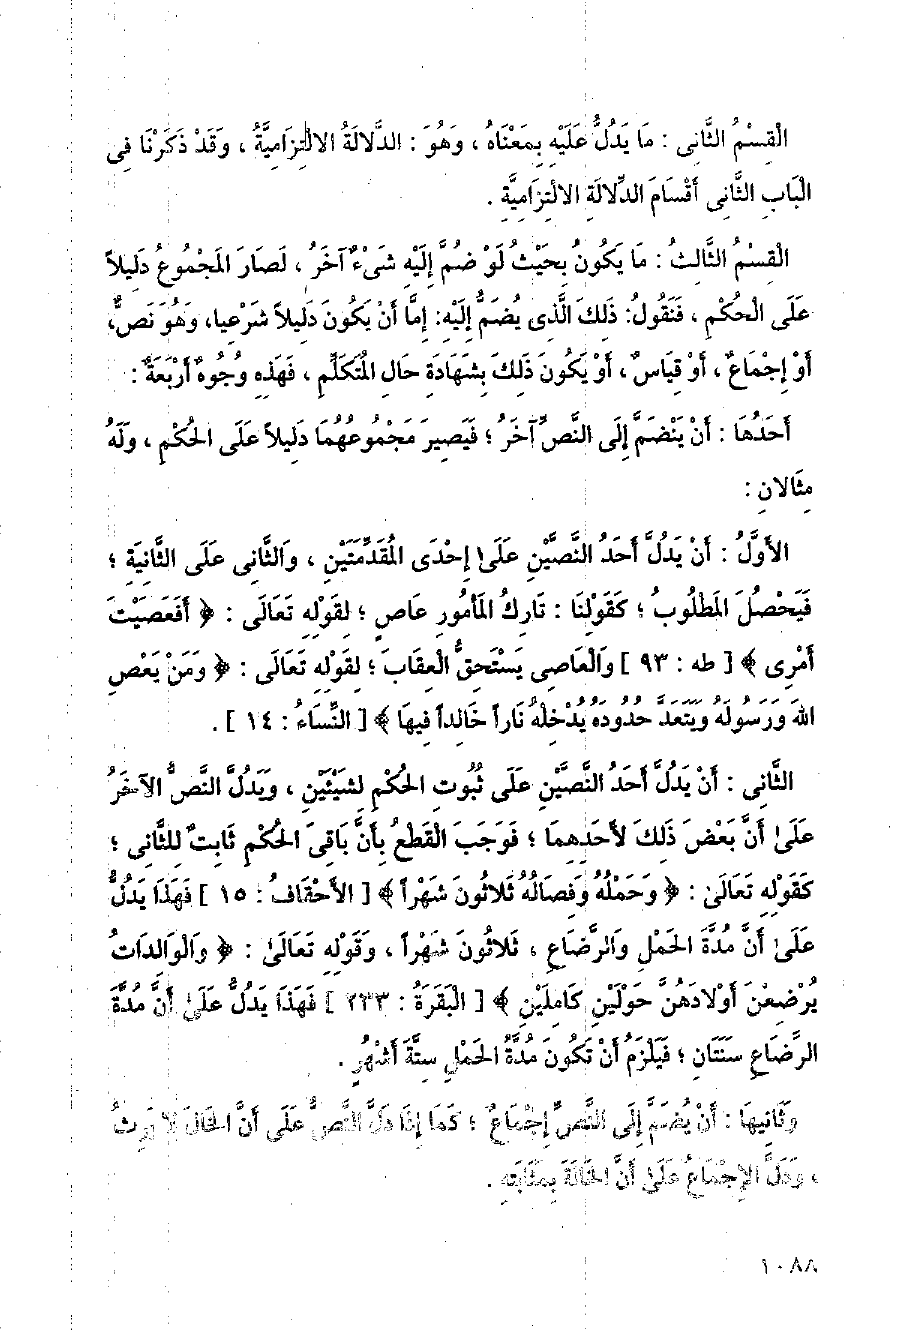 الْقِسْمُ الثَّانِى : مَا يَدُلُّ عَلَيْهِ بِمَعْنَاهُ ، وَهُوَ : الدَّلَالَةُ الالْتِزَامِيَّةُ ، وَقَدْ ذَكَرْنَا فِى
الْبَابِ الثَّانِى أَقْسَامَ الدِّلالَةِ الالْتِزَامِيَّةِ .
الْقِسْمُ الثَّالِثُ : مَا يَكُونُ بِحَيْثُ لَوْ ضُمَّ إِلَيْهِ شَىْءٌ آخَرُ ، لَصَارَ الْمَجْمُوعُ دَلِيلاً
عَلَى الْحُكْمِ ، فَنَقُولُ: ذَلِكَ الَّذِى يُضَمُّ إِلَيْهِ: إِمَّا أَنْ يَكُونَ دَلِيلاً شَرْعِيا، وَهُوَ نَصٌّ،
أَوْ إِجْمَاعٌ ، أَوْ قِيَاسٌ ، أَوْ يَكُونَ ذَلِكَ بِشَهَادَةِ حَالِ الْمُتَكَلِّمِ ، فَهَذِهِ وُجُوهٌ أَرْبَعَةٌ :
أَحَدُهَا : أَنْ يَنْضَمَّ إِلَى النَّصِّ آخَرُ ؛ فَيَصِيرَ مَجْمُوعُهُمَا دَلِيلاً عَلَى الْحُكْمِ ، وَلَهُ
مِثَالانِ :
الأَوَّلُ : أَنْ يَدُلَّ أَحَدُ النَّصَّيْنِ عَلَى إِحْدَى الْمُقَدِّمَتَيْنِ ، وَالثَّانِى عَلَى الثَّانِيَةِ ؛
فَيَحْصُلَ الْمَطْلُوبُ ؛ كَقَوْلِنَا : تَارِكُ الْمَأْمُورِ عَاصٍ ؛ لِقَوْلِهِ تَعَالَى : ﴿ أَفَعَصَيْتَ
أَمْرِى ﴾ [ طه : ٩٣ ] وَالْعَاصِى يَسْتَحِقُّ الْعِقَابَ ؛ لِقَوْلِهِ تَعَالَى : ﴿ وَمَنْ يَعْصِ
اللهَ وَرَسُولَهُ وَيَتَعَدَّ حُدُودَهُ يُدْخِلْهُ نَاراً خَالِداً فِيهَا ﴾ [ النِّسَاءُ : ١٤ ] .
الثَّانِى : أَنْ يَدُلَّ أَحَدُ النَّصَّيْنِ عَلَى ثُبُوتِ الْحُكْمِ لِشَيْئَيْنِ ، وَيَدُلَّ النَّصُّ الآخَرُ
عَلَى أَنَّ بَعْضَ ذَلِكَ لأَحَدِهِمَا ؛ فَوَجَبَ الْقَطْعُ بِأَنَّ بَاقِىَ الْحُكْمِ ثَابِتٌ لِلثَّانِى ؛
كَقَوْلِهِ تَعَالَى : ﴿ وَحَمْلُهُ وَفِصَالُهُ ثَلاثُونَ شَهْراً ﴾ [ الأَحْقَافُ : ١٥ ] فَهَذَا يَدُلُّ
عَلَى أَنَّ مُدَّةَ الْحَمْلِ وَالرَّضَاعِ ، ثَلاثُونَ شَهْراً ، وَقَوْلِهِ تَعَالَى : ﴿ وَالْوَالِدَاتُ
يُرْضِعْنَ أَوْلادَهُنَّ حَوْلَيْنِ كَامِلَيْنِ ﴾ [ الْبَقَرَةُ : ٢٣٣ ] فَهَذَا يَدُلُّ عَلَى أَنَّ مُدَّةَ
الرَّضَاعِ سَنَتَانِ ؛ فَيَلْزَمُ أَنْ تَكُونَ مُدَّةُ الْحَمْلِ سِتَّةَ أَشْهُرٍ .
وَثَانِيهَا : أَنْ يُضَمَّ إِلَى النَّصِّ إِجْمَاعٌ ؛ كَمَا إِذَا دَلَّ النَّصُّ عَلَى أَنَّ الْخَالَ لا يَرِثُ
، وَدَلَّ الإِجْمَاعُ عَلَى أَنَّ الْخَالَةَ بِمَثَابَتِهِ .
١٠٨٨